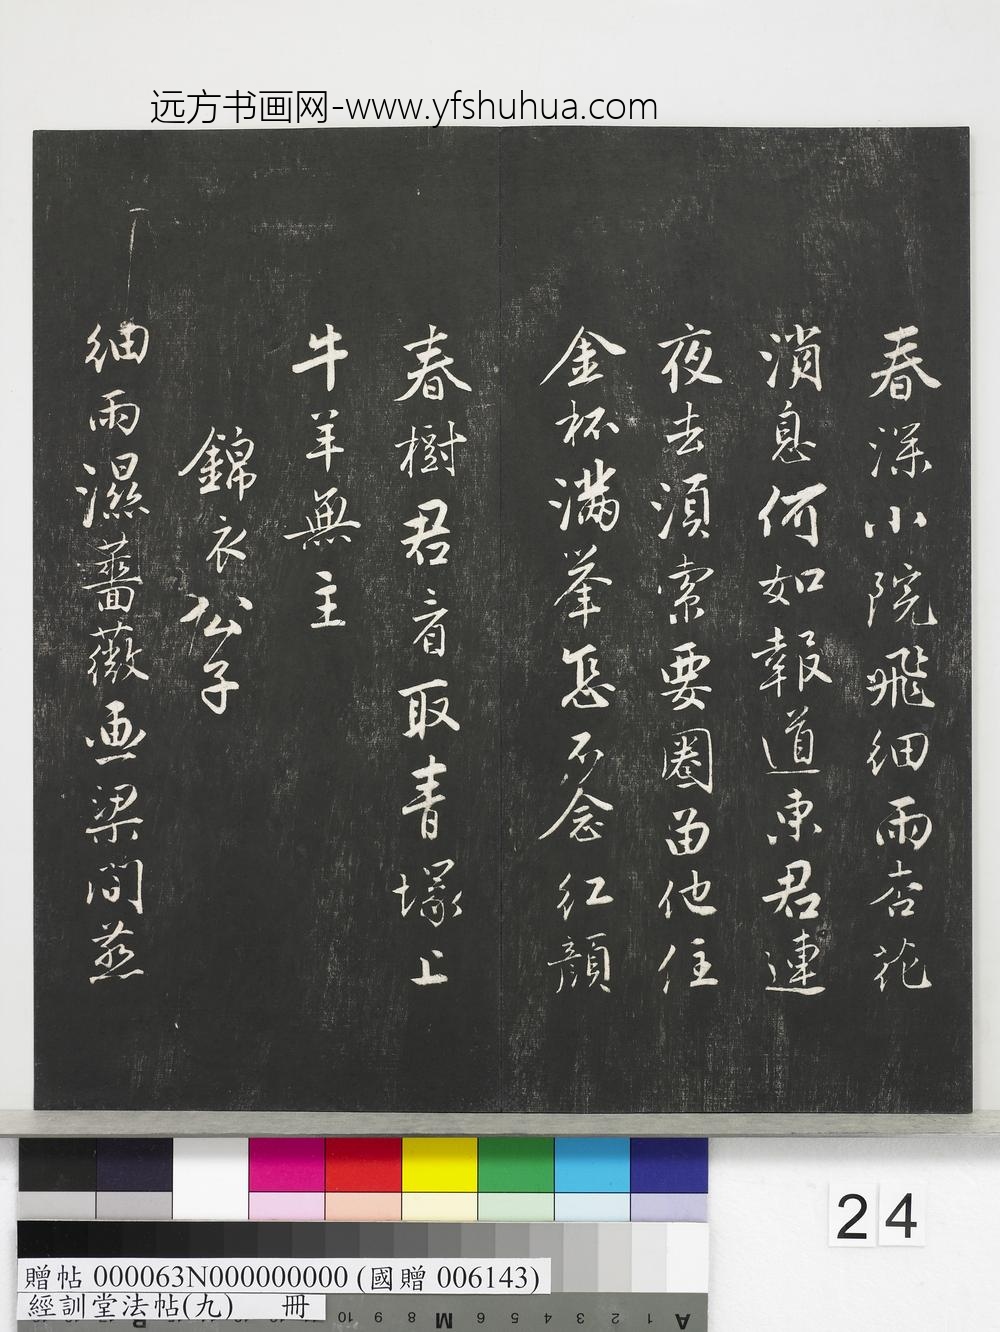 远方书画网-www.yfshuhua.com
春深小院飛細雨杏花
消息何如報道東君連
夜去須索要圈留他住
金杯滿举恁不念红顔
春樹君看取青塚上
牛羊無主
錦衣公子
細雨濕薔薇画梁間燕
24
贈帖 000063N000000000 (國贈 006143)
經訓堂法帖(九) 冊